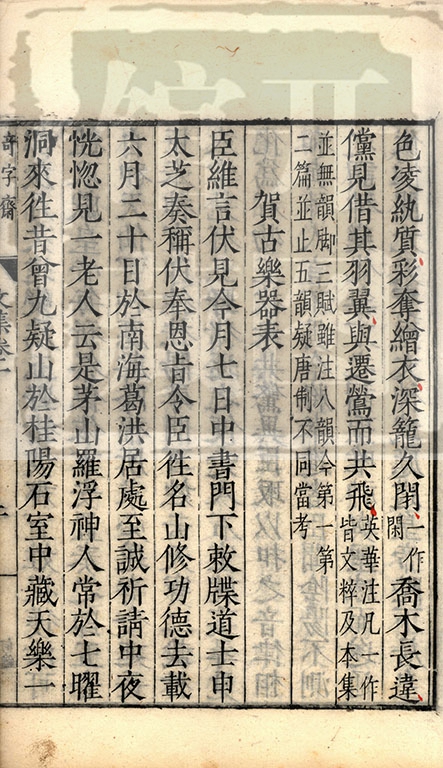 色凌紈質彩奪繒衣深籠久閉一作閑喬木長違
儻見借其羽翼與遷鶯而共飛英華注凡一作皆文粹及本集
並無韻脚三賦雖注八韻今第一第
二篇並止五韻疑唐制不同當考
賀古樂器表
臣維言伏見今月七日中書門下敕牒道士申
太芝奏稱伏奉恩旨令臣徃名山修功德去載
六月二十日於南海葛洪居處至誠祈請中夜
恍惚見一老人云是茅山羅浮神人常於七曜
洞來徃昔曾九疑山於桂陽石室中藏天樂一
奇字齋
文集卷一